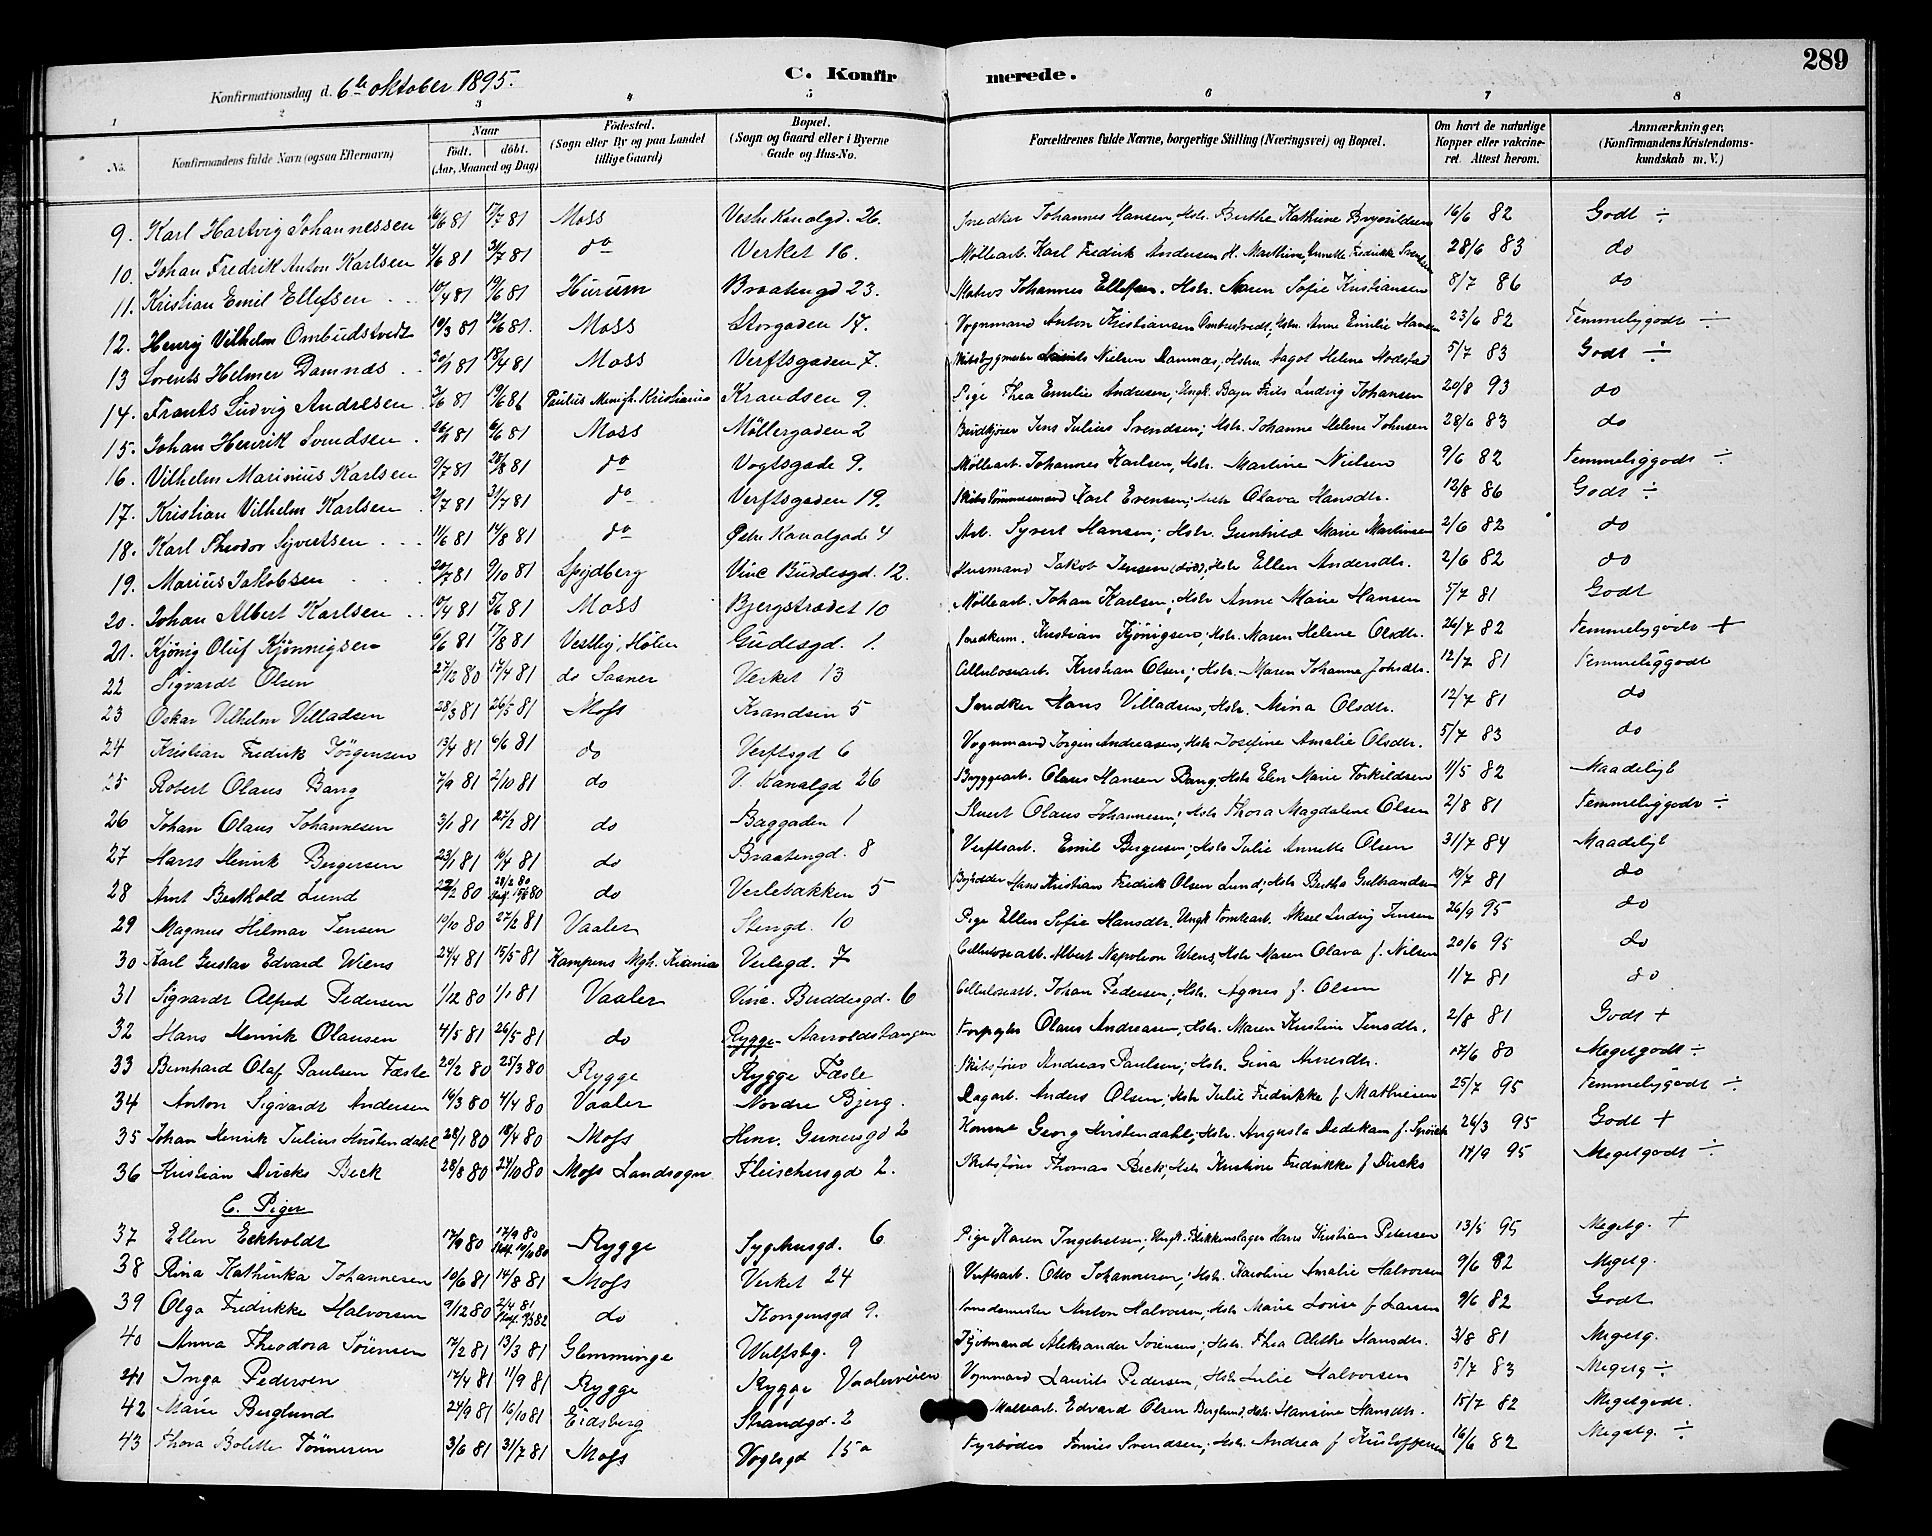 289
C. Konfirmerede.
Konfirmationsdag d. 6te oktober 1895.
1 2 3 4 5 6 7 8
No. Konfirmandens fulde Navn (ogsaa Efternavn) Naar Födt. döbt. (Aar, Maaned og Dag) Födested. (Sogn eller By og paa Landet tillige Gaard) Bopæl. (Sogn og Gaard eller i Byerne Gade og Hus-No. Forældrenes fulde Navne, borgerlige Stilling (Næringsvei) og Bopæl. Om havt de naturlige Kopper eller vakcineret. Attest herom. Anmærkninger. (Konfirmandens Kristendomskundskab m. V.)
9. Karl Hartvig Johannessen 16/6 81 17/7 81 Moss Vestre Kanalgd. 26. Snedker Johannes Hansen, Hstr. Berthe Kathrine 16/6 82 Godt ÷
10. Johan Fredrik Anton Karlsen 4/6 81 31/7 81 do Verket 16. Möllearb. Karl Fredrik Andersen H. Mathine Annette Fredrikke 28/6 83 do
11. Kristian Emil Ellefsen 10/4 81 19/6 81 Hurum Braatengd 23. Matros Johannes Ellefsen. Hstr. Maren Sofie Kristiansen 8/7 86 do
12. Henrij Vilhelm Ombudstvedt 19/3 81 12/6 81. Moss Storgaden 17. Vognmand Anton Kristiansen Ombudstvedt, Hstr. Anne Emilie Hansen 23/6 82 Temmeligodt ÷
13 Lorents Helmer Damnæs 30/1 81 18/4 81 Moss Verftsgaden 7. Nielsen Damnæs, Hstru Aagot Helene 5/7 83 Godt ÷
14. Frants Ludvig Andresen 3/6 81 19/6 86 Paulus Menigh. Kristiania Krandsen 9. Pige Thea Emilie Andresen, Ungk. Frits Ludvig Johansen 20/8 93 do
15. Johan Henrik Svendsen 26/1 81 6/6 81 Moss Möllergaden 2 Jens Julius Svendsen; Hstr. Johanne Helene Johnsen 28/6 83 do
16. Vilhelm Marinius Karlsen 9/7 81 28/8 81 do Vogtsgade 9. Möllearb. Johannes Karlsen, Hstr. Martine Nielsen 9/6 82 Temmeliggodt ÷
17. Kristian Vilhelm Karlsen 2/7 81 31/7 81 do Verftsgaden 19. Skibstömmermand Karl Evensen; hstr. Olava Hansdtr. 12/8 86 Godt ÷
18. Karl Theodor Syvertsen 11/6 81 14/8 81 do Østre Kanalgade 4 Arb. Syvert Hansen; Hstr. Gunhild Marie Martinsen 2/6 82 do
19. Marius Jakobsen 20/7 81 9/10 81 Spydberg Vinc Buddesgd. 12. Husmand Jakob Jensen (död), Hstr Ellen Andersdtr. 2/6 82 do
20. Johan Albert Karlsen 10/4 81 5/6 81 Moss Bjergstrædet 10 Möllearb. Johan Karlsen; Hstr Anne Marie Hansen 5/7 81 Godt
21. Kjönig Oluf Kjönnigsen 6/6 81 17/8 81 Vestby, Hölen Gudesgd. 1. Kristian Kjönigsen, Hstr. Maren Helene Olsdtr. 26/7 82 Temmeligodt +
22 Sigvardt Olsen 27/12 80 17/4 81 do Saaner Verket 13 Cellulosearb. Kristian Olsen; Hstr. Maren Johanne Johsdtr. 12/7 81 Temmeliggodt
23 Oskar Vilhelm Villadsen 28/3 81 26/5 81 Moss Krandsen 5 Snedker Hans Villadsen, Hstr. Mina Olsdtr. 12/7 81 do
24 Kristian Fredrik Jörgensen 13/4 81 6/6 81 do Verftsgd 6 Vognmand Jörgen Andreasen, Hstr Josefine Amalie Olsdtr. 5/7 83 do
25 Robert Olaus Bang 7/9 81 2/10 81 do V. Kanalgd 26 Bryggearb. Olaus Hansen Bang. Hstr Elen Marie Torkildsen 11/5 82 Maadeligt
26 Johan Olaus Johannesen 3/1 81 27/2 81 do Baggaden 1 Olaus Johannesen; Hstr Thora Magdalene Olsen 2/8 81 Temmeliggodt ÷
27 Hans Henrik Bergersen 23/1 81 10/4 81 do Braatengd. 8 Verftsarb. Emil Bergersen; Hstr Julie Annette Olsen 31/7 84 Maadeligt
28 Arnt Berthold Lund 22/2 80 28/2 80 do Verlebakken 5 Hans Kristian Fredrik Olsen Lund; Hstr Bertha Gulbrandsen 19/7 81 do
29 Magnus Hilmar Jensen 19/10 80 27/2 81 Vaaler Stengd. 10 Pige Ellen Sofie Hansdtr. Ungk Tomtearb. Aksel Ludvig Jensen 26/9 95 do
30 Karl Gustav Edvard Wiens 24/4 81 15/5 81 Kampens Mgh. Kr.ania Verlegd. 7 Cellulosearb. Albert Napoleon Wiens, Hstr Maren Olava f. Nilsen 20/6 95 do
31 Sigvardt Alfred Pedersen 1/12 80 1/1 81 Vaaler Vinc. Buddesgd. 6 Cellulosearb. Johan Pedersen; Hstr. Agnes f. Olsen 1/7 81 do
32 Hans Henrik Olausen 4/5 81 26/5 81 do Rygge- Aarvoldstangen Forpagter Olaus Andreasen, Hstr. Maren Kristine Jensdtr. 2/8 81 Godt +
33 Bernhard Olaf Paulsen Fæste 20/2 80 25/3 80 Rygge Rygge Fæste Skibsförer Andreas Paulsen; Hstr. Gina 17/6 80 Megetgodt ÷
34 Anton Sigvardt Andersen 14/3 80 4/4 80 Vaaler Nordre Bjerg. Dagarb. Anders Olsen; Hstr Julie Fredrikke f Mathiesen 25/7 95 Temmeligodt ÷
35 Johan Henrik Julius Hirstendahl 28/1 80 18/4 80 Moss Henr. Gernersgd 2 Georg Hirstendahl; Hstr. Augusta Dedekam f. 24/3 95 Godt +
36 Kristian Dircks Beck 28/8 80 24/10 80 Moss Landsogn Fleischersgd 2. Skibsförer Thomas Beck; Hstr Kristine Fredrikke f Dircks 14/9 95 Megetgodt ÷
C. Piger
37 Ellen Eckholdt 17/9 80 17/9 80 Rygge Syghusgd. 6 Pige Karen Ingebretsen; Ungk. Blikkenslager Hans Kristian Petersen 13/5 95 Megetg. +
38 Rina Kathinka Johannesen 10/6 81 14/8 81 Moss Verket 24 Verftsarb. Otto Johannesen; Hstr. Karoline Amalie Halvorsen 9/6 82 Megetg.
39 Olga Fredrikke Halvorsen 9/12 80 2/4 81 do Kongensgd 9. Smedemester Anton Halvorsen, Hstr Marie Lovise f Larsen 9/6 82 Godt
40 Anna Theodora Sörensen 17/2 81 13/3 81 Glemminge Wulfsbg. 9 Aleksander Sörensen; Hstr. Thea Alethe Hansdtr. 3/8 81 Megetg.
41 Inga Pedersen 17/4 81 11/9 81 Rygge Rygge Vaalerveien Vognmand Laurits Pedersen, Hstr Julie Halvorsen 5/7 83 Megetg ÷
42 Marie Berglund 24/9 81 16/10 81 Eidsberg Strandgd. 2 Möllearb. Edvard Olsen Berglund, Hstr. Hansine Hansdtr. 15/7 82 Megetgodt.
43 Thora Bolette Tönnesen 3/6 81 31/7 81 Moss Vogtsgd 15a Fyrböder Tönnes Svendsen; Hstr. Andrea f Kristoffersen 16/6 82 Megetg. ÷